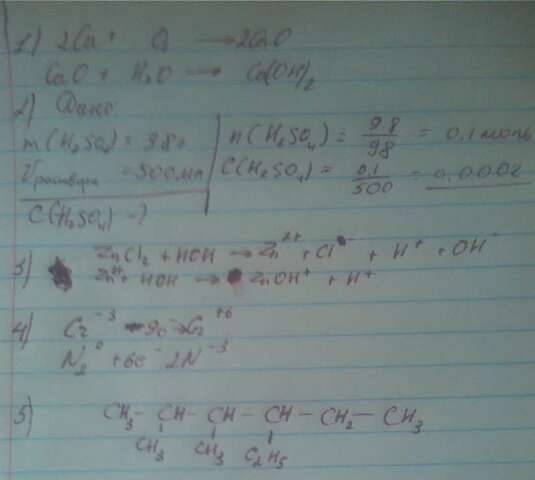 1) 2Ca + O₂ → 2CaO
CaO + H₂O → Ca(OH)₂
2) Дано
m(H₂SO₄) = 9.8г
Vраствора = 500мл
C(H₂SO₄) - ?
n(H₂SO₄) = 9.8/98 = 0,1 моль
C(H₂SO₄) = 0,1/500 = 0,0002
3) ZnCl₂ + HOH → Zn²⁺ + Cl⁻ + H⁺ + OH⁻
Zn²⁺ + HOH → ZnOH⁺ + H⁺
4) Cr⁻³ - 9e⁻ → Cr⁺⁶
N₂⁰ + 6e⁻ 2N⁻³
5) CH₃ - CH - CH - CH - CH₂ - CH₃
CH₃ CH₃ C₂H₅